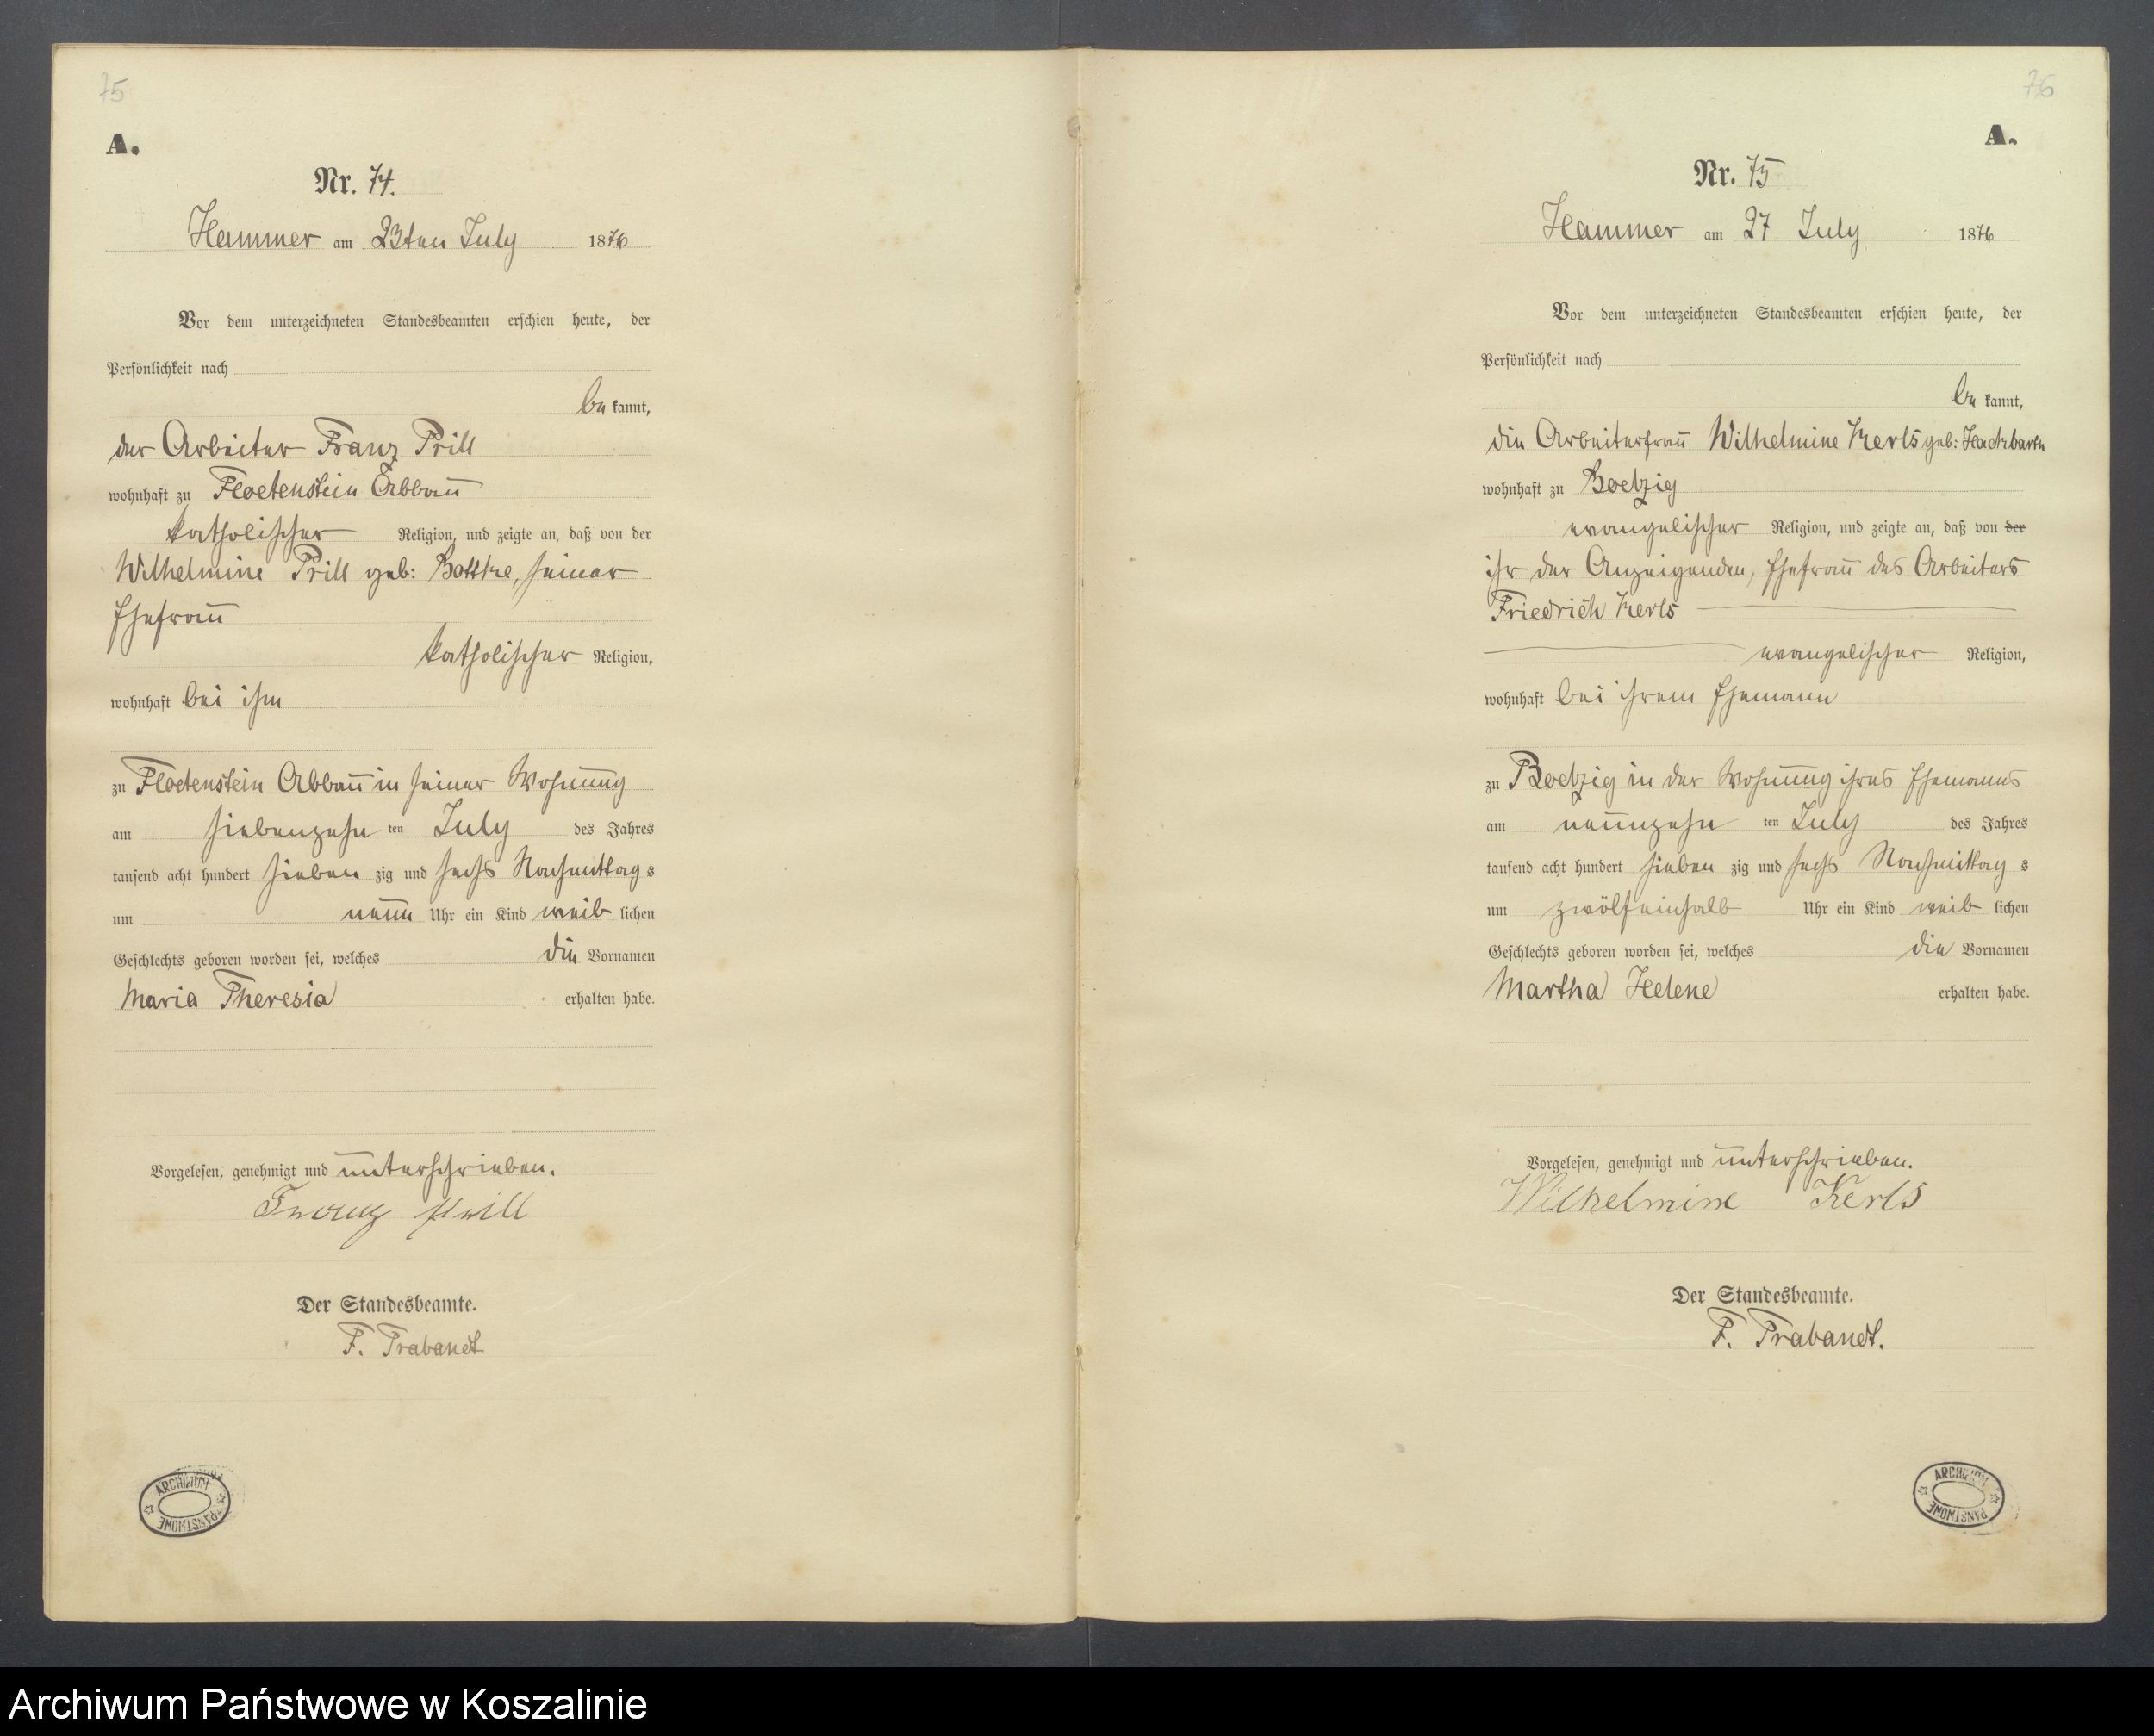 75
A.
Nr. 74.
Hammer am 23ten July 1876
Vor dem unterzeichneten Standesbeamten erschien heute, der
Persönlichkeit nach
be kannt,
der Arbeiter Franz Prill
wohnhaft zu Floetenstein Abbau
katholischer Religion, und zeigte an, daß von der
Wilhelmine Prill geb: Bottke, seiner
Ehefrau
katholischer Religion,
wohnhaft bei ihm
zu Floetenstein Abbau in seiner Wohnung
am siebenzehn ten July des Jahres
tausend acht hundert sieben zig und sechs Nachmittag s
um neun Uhr ein Kind weib lichen
Geschlechts geboren worden sei, welches die Vornamen
Maria Theresia erhalten habe.
Vorgelesen, genehmigt und unterschrieben.
Franz Prill
Der Standesbeamte.
F. Trabandt
ARCHIWUM PAŃSTWOWE
76
A.
Nr. 75
Hammer am 27 July 1876
Vor dem unterzeichneten Standesbeamten erschien heute, der
Persönlichkeit nach
be kannt,
die Arbeiterfrau Wilhelmine Kerls geb: Hackbarth
wohnhaft zu Boetzig
evangelischer Religion, und zeigte an, daß von der
ihr der Anzeigenden, Ehefrau des Arbeiters
Friedrich Kerls
evangelischer Religion,
wohnhaft bei ihrem Ehemann
zu Boetzig in der Wohnung ihres Ehemanns
am neunzehn ten July des Jahres
tausend acht hundert sieben zig und sechs Nachmittag s
um zwölfeinhalb Uhr ein Kind weib lichen
Geschlechts geboren worden sei, welches die Vornamen
Martha Helene erhalten habe.
Vorgelesen, genehmigt und unterschrieben.
Wilhelmine Kerls
Der Standesbeamte.
F. Trabandt.
ARCHIWUM PAŃSTWOWE
Archiwum Państwowe w Koszalinie